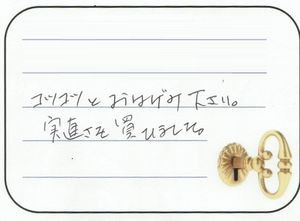 コツコツとおはげみ下さい。
実直さを買いました。